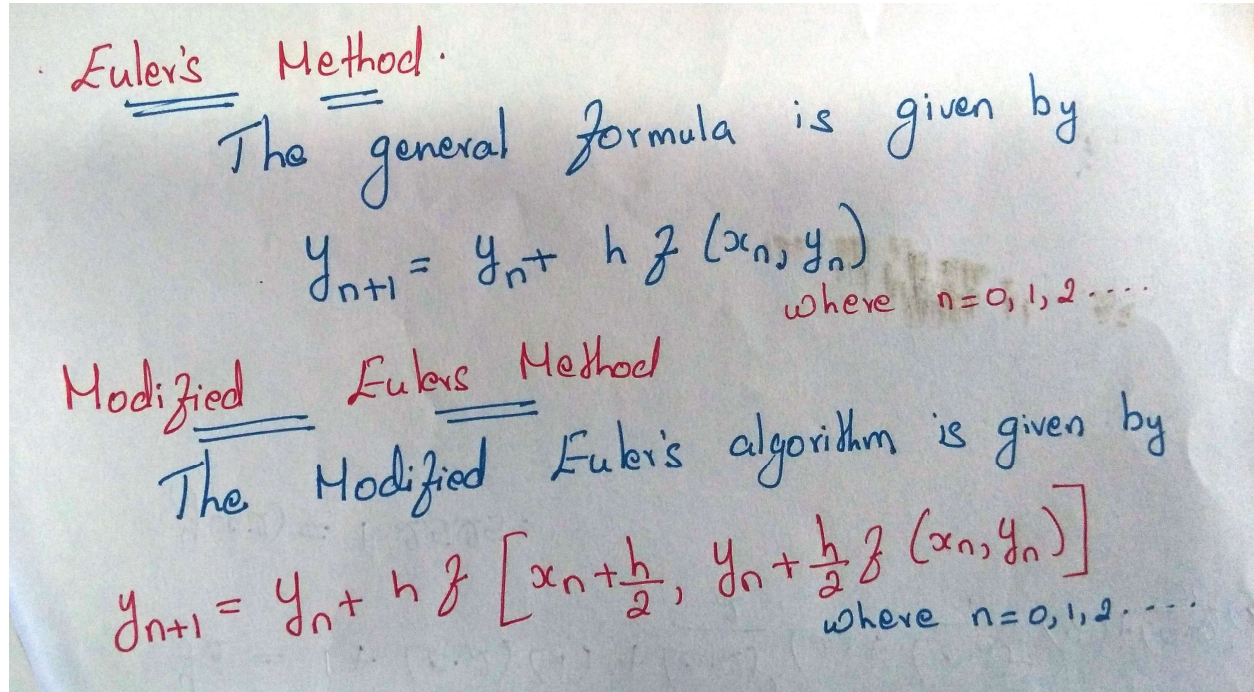 Euler's Method.
The general formula is given by
yn+1 = yn + h f (xn, yn)
where n=0, 1, 2 ....
Modified Eulers Method
The Modified Euler's algorithm is given by
yn+1 = yn + h f [xn + h/2, yn + h/2 f (xn, yn)]
where n=0, 1, 2. ....